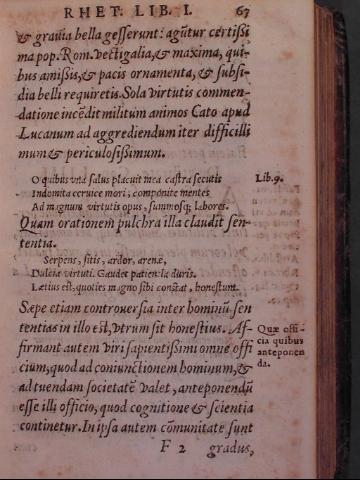 RHET. LIB. I. 67
& grauia bella gesserunt: agũtur certissi
ma pop. Rom. vectigalia, & maxima, qui-
bus amissis, & pacis ornamenta, & subsi-
dia belli requiretis. Sola virtutis commen-
datione incẽdit militum animos Cato apud
Lucanum ad aggrediendum iter difficilli
mum & periculosissimum.
O quibus vna salus placuit mea castra secutis
Lib. 9.
Indomita ceruice mori, componite mentes
Ad magnum virtutis opus, summosq; labores.
Quam orationem pulchra illa claudit sen-
tentia.
Serpens, sitis, ardor, arenæ,
Dulcia virtuti. Gaudet patientia duris.
Lætius est, quoties magno sibi constat, honestum.
Sæpe etiam controuersia inter hominũ sen
tentias in illo est, vtrum sit honestius. Af-
Quæ offi-
firmant autem viri sapientissimi omne offi
cia quibus
cium, quod ad coniunctionem hominum, &
anteponen
ad tuendam societatẽ valet, anteponendũ
da.
esse illi officio, quod cognitione & scientia
continetur. In ipsa autem cõmunitate sunt
F 2 gradus,